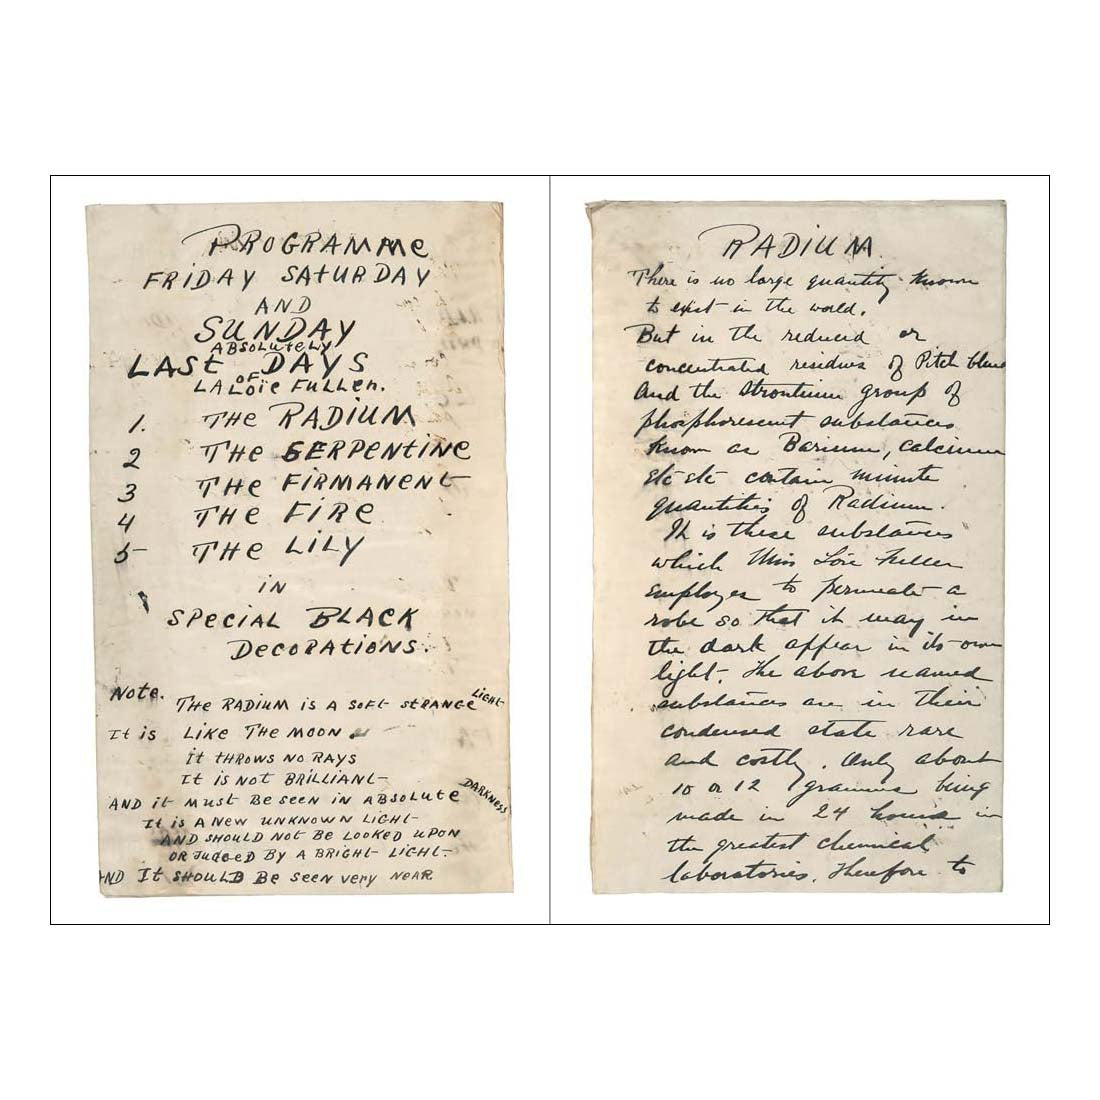 PROGRAMME
FRIDAY SATURDAY
AND
SUNDAY
ABSOLUTELY
LAST DAYS
OF
LA LOïE FULLER.
1. THE RADIUM
2 THE SERPENTINE
3 THE FIRMANENT
4 THE FIRE
5 THE LILY
IN
SPECIAL BLACK
DECORATIONS.
NOTE. THE RADIUM IS A SOFT STRANGE LIGHT
It is LIKE THE MOON.
it THROWS NO RAYS
It is NOT BRILLIANT
AND it MUST BE SEEN IN ABSOLUTE DARKNESS
It is A NEW UNKNOWN LIGHT
AND SHOULD NOT BE LOOKED UPON
OR JUDGED BY A BRIGHT LIGHT.
AND It SHOULD BE SEEN VERY NEAR
RADIUM
There is no large quantity known
to exist in the world.
But in the reduced or
concentrated residues of Pitch blende
and the Strontium group of
phosphorescent substances
known as Barium, Calcium
etc etc contain minute
quantities of Radium.
It is these substances
which Miss Loïe Fuller
employes to permeate a
robe so that it may in
the dark appear in its own
light. The above named
substances are in their
condensed state rare
and costly. Only about
10 or 12 grammes being
made in 24 hours in
the greatest chemical
laboratories. Therefore to